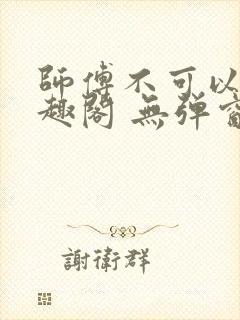 師傅不可以
趣閣 無彈
謝衛群